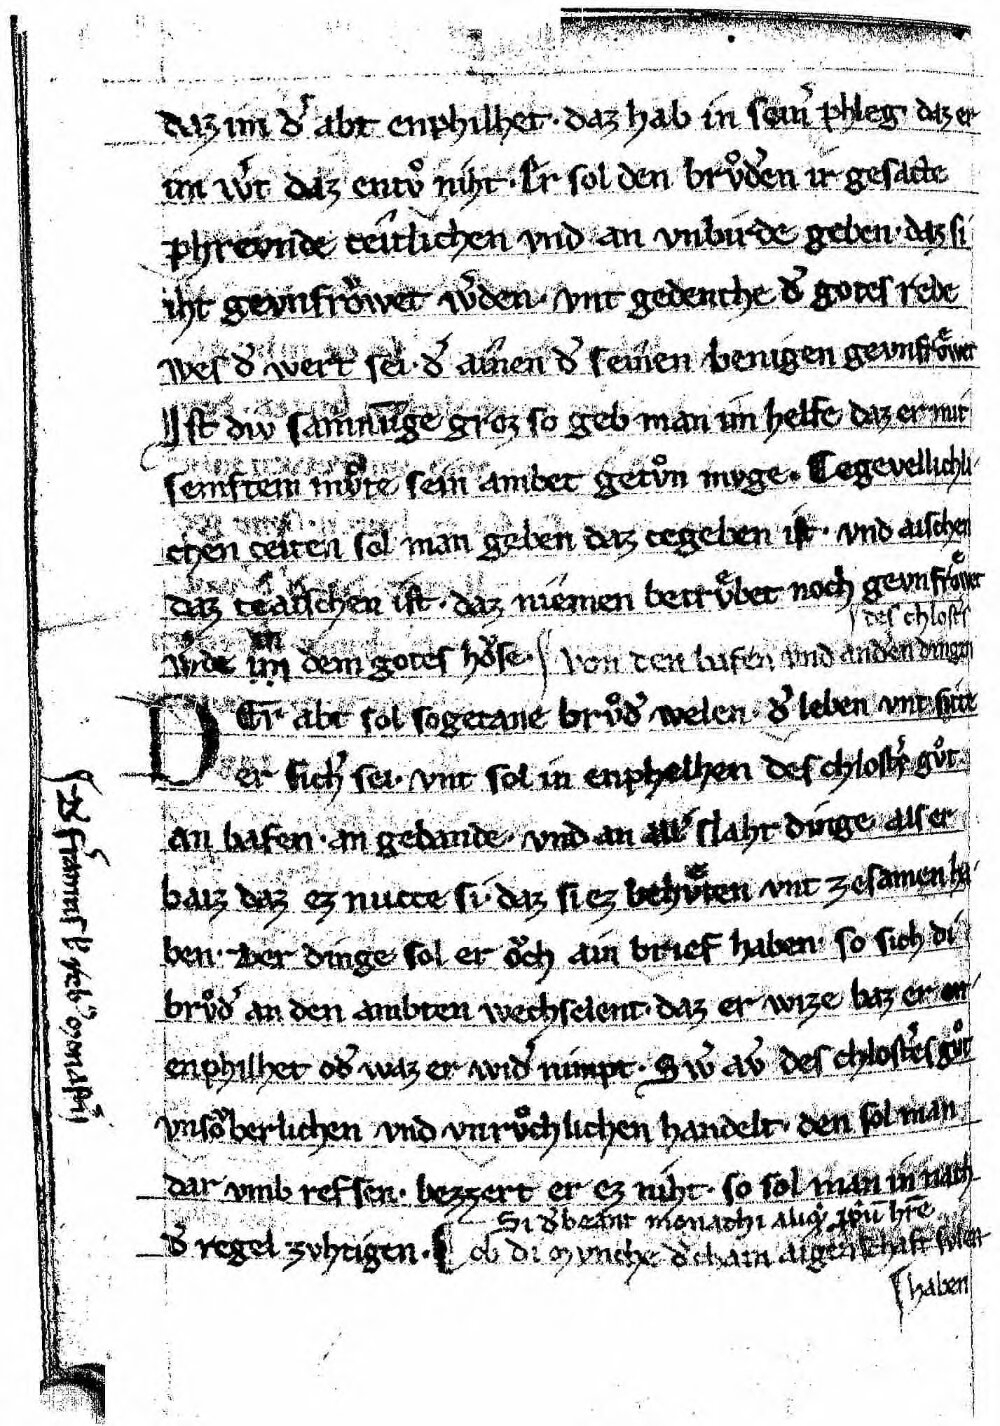 daz im d͛ abt enphilhet · daz hab in sein͛ phleg · daz er
im w͛t daz entvͦ niht · Er sol den brvͦd͛en ir gesatte
phreunde ceitlichen vnd an vnbirde geben · daz si
iht gevnfroͤwet w͛den · vnt gedenche d͛ gotes rede
wes d͛ wert sei · d͛ ainen d͛ seinen benigen gevnfroͤwet
Ist div samnūge groz so geb man im helfe daz er mit
semftem mvͦte sein ambet getvͦn mvge · Cegevellichli
chen ceiten sol man geben daz cegeben ist · vnd aischen
daz ce aischen ist · daz niemen betrvͤbet noch gevnfroͤwet
des chlost͛s
w͛de in dem gotes hoͮse · von den vasen vnd anden dingen
DEr abt sol sogetane brvͦd͛ welen · d͛ leben vnt sitte
er sich͛ sei · vnt sol in enphelhen des chlost͛s gvͦt
an vasen · an gebande · vnd an all͛ slaht dinge als er
vaiz daz ez nucce si · daz si ez behvͤten vnt zesamen ha
ben · Der dinge sol er oͮch ain brief haben · so sich di
brvͦd͛ an den ambten wechselent · daz er wize vaz er in
enphilhet od͛ waz er wid͛ nimpt · Sw͛ av͛ des chlost͛s gvͦt
vnsoͮberlichen vnd vnrvͦchlichen handelt · den sol man
dar vmb refsen · bezzert er ez niht · so sol man in nach
Si debeant monachi aliqd ppu hr̄e
d͛ regel zvhtigen · ob di mvnche d͛chain aigenschaft svlen
haben